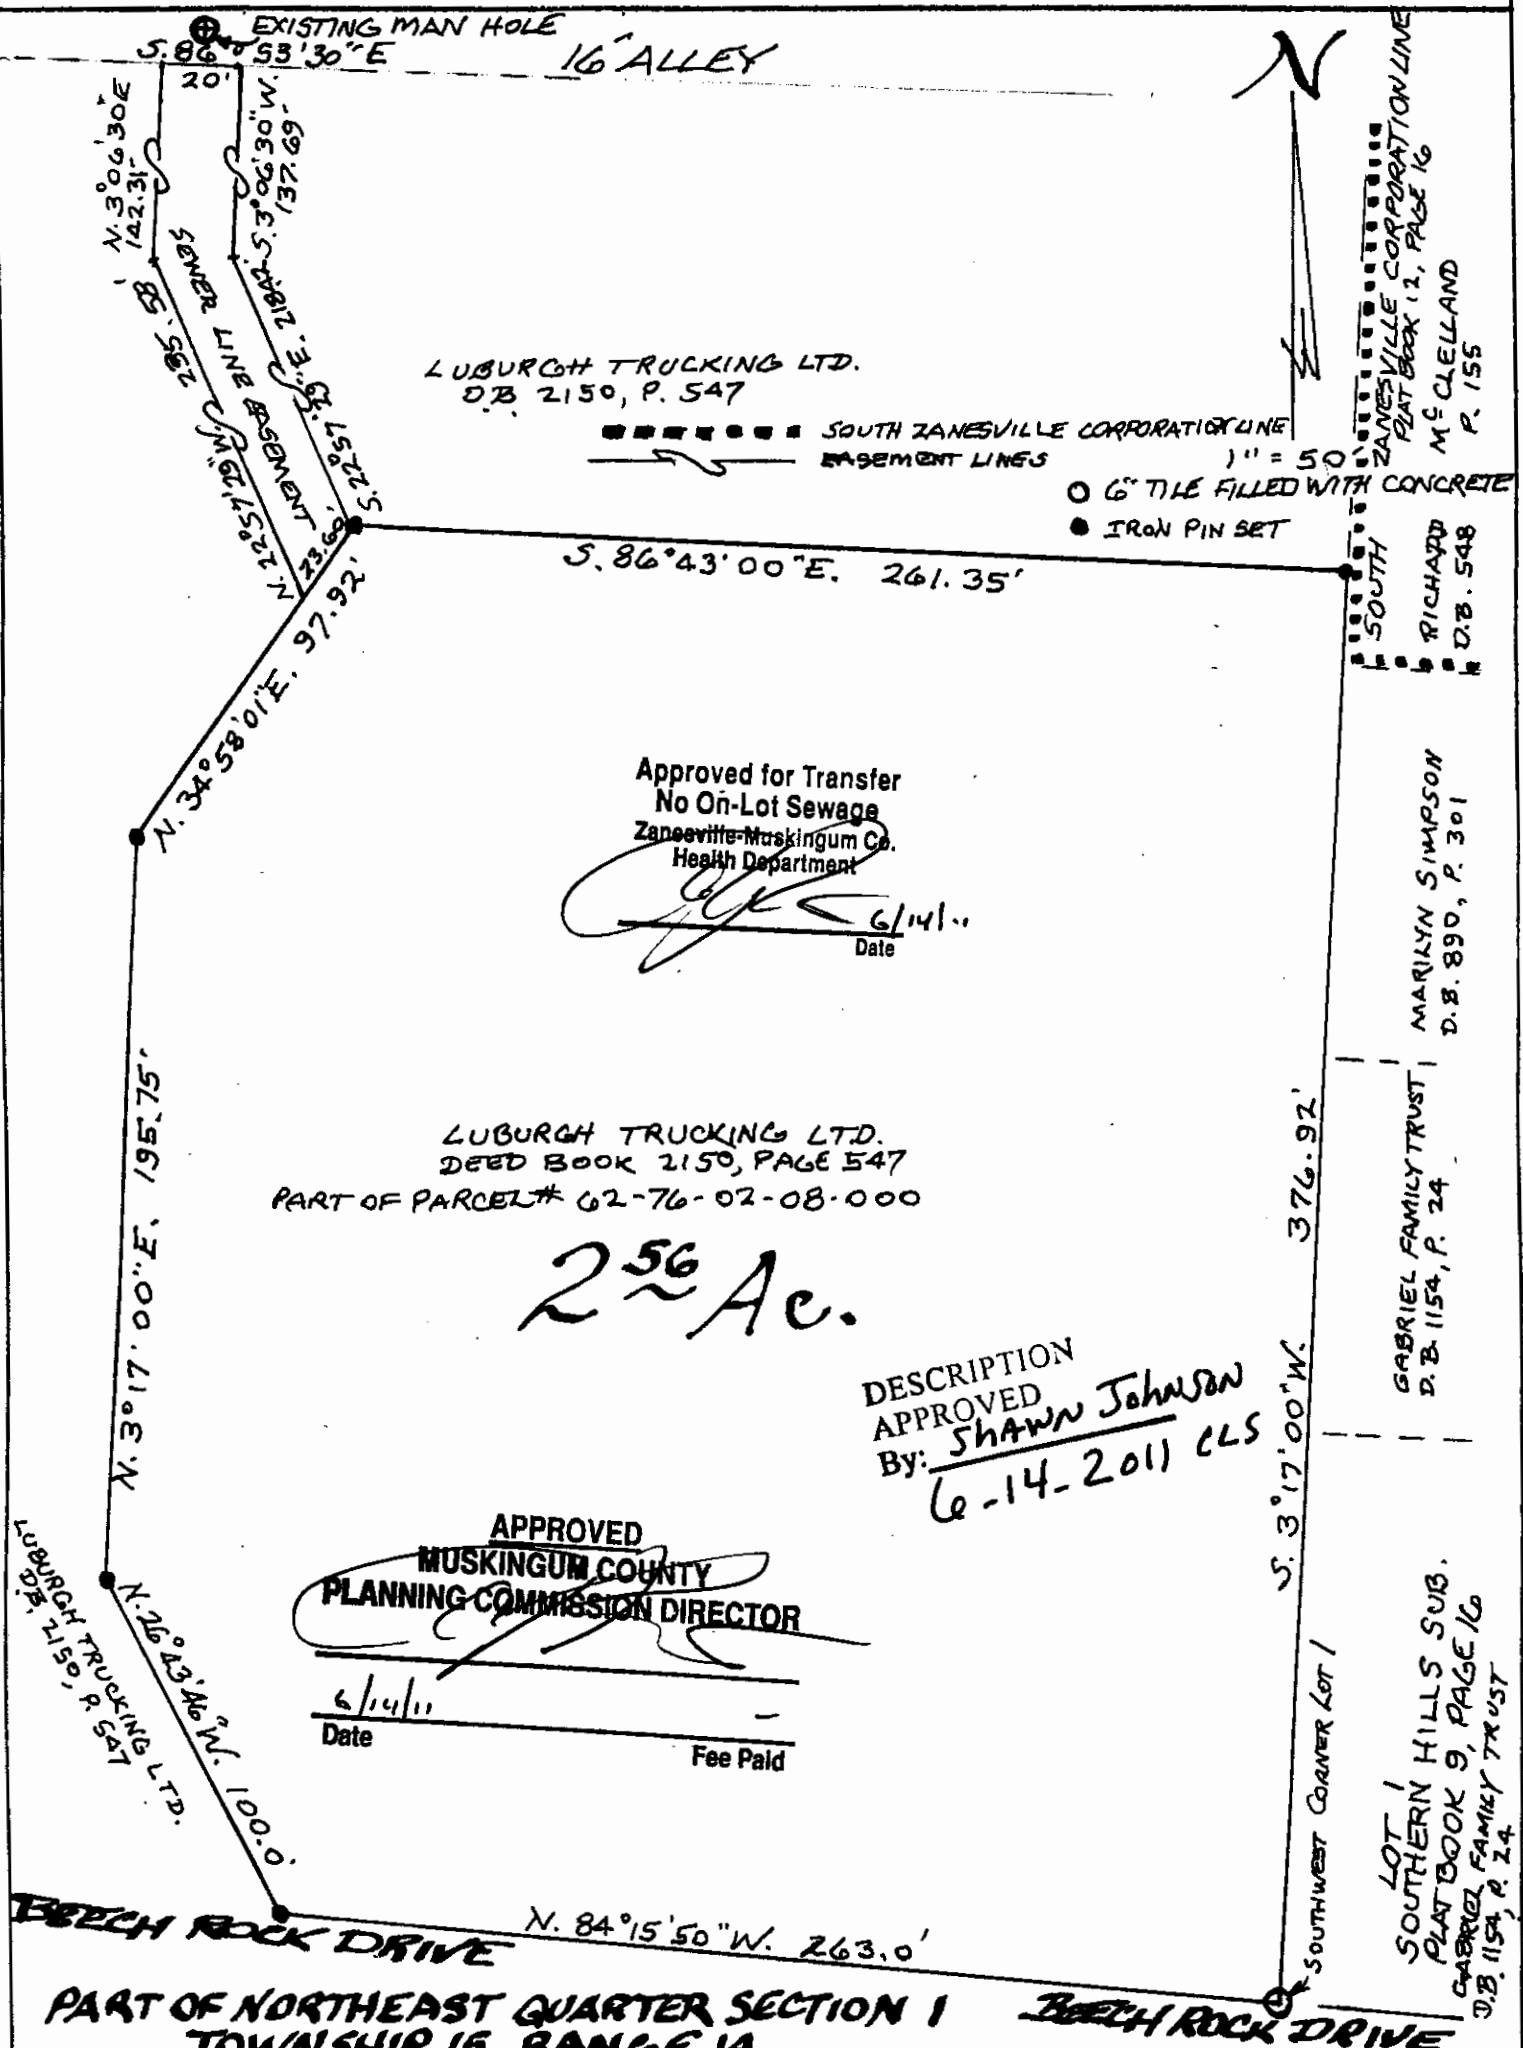 EXISTING MAN HOLE
S. 86° 53'30" E
20'
16' ALLEY
N
N. 3°06'30"E
142.31'
S. 3°06'30"W.
137.69'
SEWER LINE EASEMENT
N. 22°57'29"W. 295.58'
S. 22°57'29"E. 218.42'
23.60'
LUBURGH TRUCKING LTD.
D.B. 2150, P. 547
SOUTH ZANESVILLE CORPORATION LINE
EASEMENT LINES
1" = 50'
6" TILE FILLED WITH CONCRETE
IRON PIN SET
SOUTH ZANESVILLE CORPORATION LINE
PLAT BOOK 12, PAGE 16
RICHARD McCLELLAND
D.B. 548 P. 155
S. 86°43'00"E. 261.35'
N. 34°58'01"E. 97.92'
Approved for Transfer
No On-Lot Sewage
Zanesville-Muskingum Co.
Health Department
6/14/11
Date
MARILYN SIMPSON
D.B. 890, P. 301
N. 3°17'00"E. 195.75'
LUBURGH TRUCKING LTD.
DEED BOOK 2150, PAGE 547
PART OF PARCEL# 62-76-02-08-000
2 56 Ac.
S. 3°17'00"W. 376.92'
GABRIEL FAMILY TRUST
D.B. 1154, P. 24
DESCRIPTION
APPROVED
By: SHAWN JOHNSON
6-14-2011 CLS
APPROVED
MUSKINGUM COUNTY
PLANNING COMMISSION DIRECTOR
6/14/11 –
Date Fee Paid
LUBURGH TRUCKING LTD.
D.B. 2150, P. 547
N. 26°43'46"W. 100.0'
SOUTHWEST CORNER LOT 1
LOT 1
SOUTHERN HILLS SUB.
PLAT BOOK 9, PAGE 16
GABRIEL FAMILY TRUST
D.B. 1154, P. 24
BEECH ROCK DRIVE
N. 84°15'50"W. 263.0'
PART OF NORTHEAST QUARTER SECTION 1
BEECH ROCK DRIVE
TOWNSHIP 15, RANGE 14